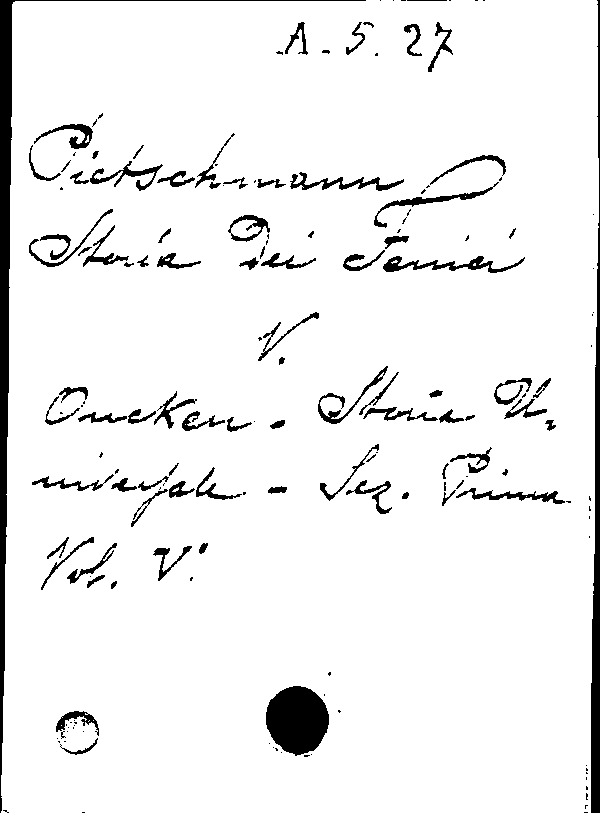 A. 5. 27
Pietschmann
Storia Dei Fenici
V.
Oncken - Storia U-
niversale - Sez. Prima
Vol. V.